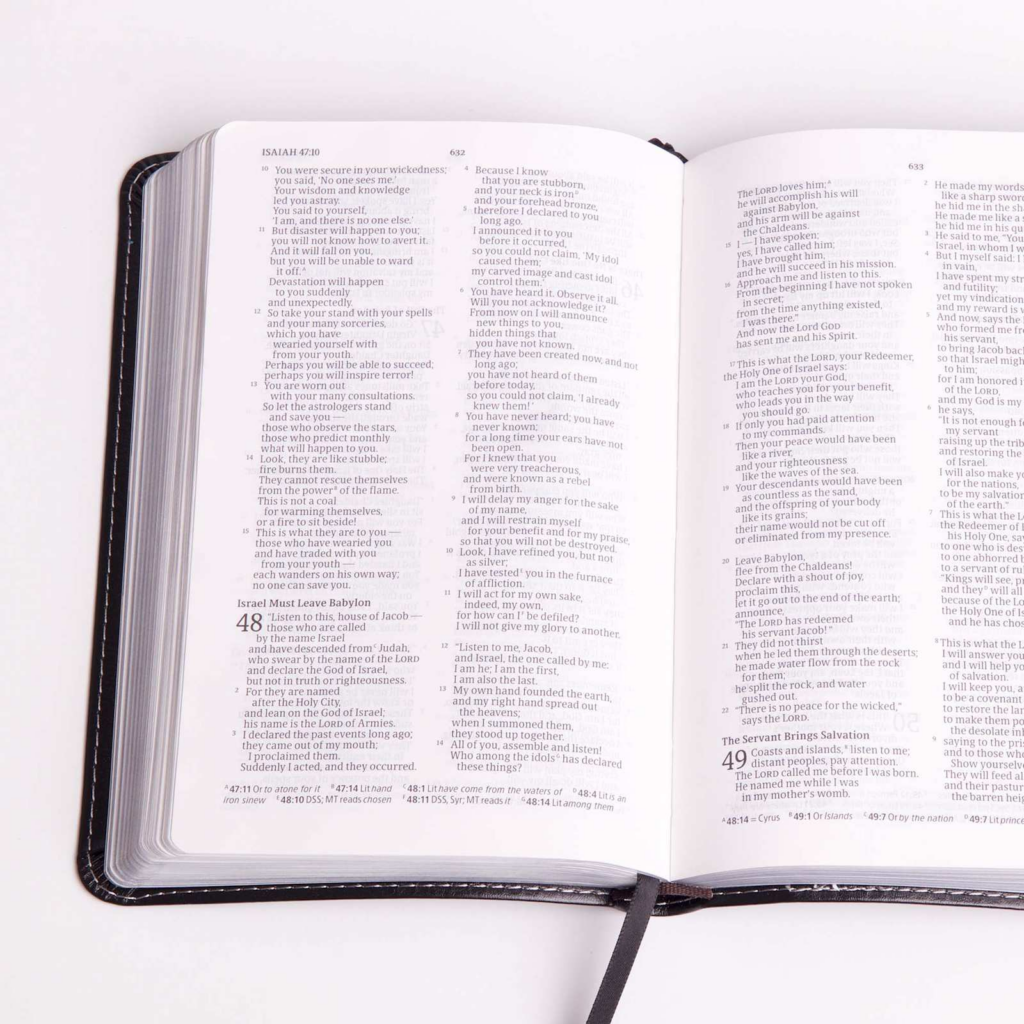 ISAIAH 47:10
632
10 You were secure in your wickedness;
you said, 'No one sees me.'
Your wisdom and knowledge
led you astray.
You said to yourself,
'I am, and there is no one else.'
11 But disaster will happen to you;
you will not know how to avert it.
And it will fall on you,
but you will be unable to ward
it off.ᴬ
Devastation will happen
to you suddenly
and unexpectedly.
12 So take your stand with your spells
and your many sorceries,
which you have
wearied yourself with
from your youth.
Perhaps you will be able to succeed;
perhaps you will inspire terror!
13 You are worn out
with your many consultations.
So let the astrologers stand
and save you —
those who observe the stars,
those who predict monthly
what will happen to you.
14 Look, they are like stubble;
fire burns them.
They cannot rescue themselves
from the powerᴮ of the flame.
This is not a coal
for warming themselves,
or a fire to sit beside!
15 This is what they are to you —
those who have wearied you
and have traded with you
from your youth —
each wanders on his own way;
no one can save you.
Israel Must Leave Babylon
48 "Listen to this, house of Jacob —
those who are called
by the name Israel
and have descended fromᶜ Judah,
who swear by the name of the LORD
and declare the God of Israel,
but not in truth or righteousness.
2 For they are named
after the Holy City,
and lean on the God of Israel;
his name is the LORD of Armies.
3 I declared the past events long ago;
they came out of my mouth;
I proclaimed them.
Suddenly I acted, and they occurred.
4 Because I know
that you are stubborn,
and your neck is ironᴰ
and your forehead bronze,
5 therefore I declared to you
long ago.
I announced it to you
before it occurred,
so you could not claim, 'My idol
caused them;
my carved image and cast idol
control them.'
6 You have heard it. Observe it all.
Will you not acknowledge it?
From now on I will announce
new things to you,
hidden things that
you have not known.
7 They have been created now, and not
long ago;
you have not heard of them
before today,
so you could not claim, 'I already
knew them!'
8 You have never heard; you have
never known;
for a long time your ears have not
been open.
For I knew that you
were very treacherous,
and were known as a rebel
from birth.
9 I will delay my anger for the sake
of my name,
and I will restrain myself
for your benefit and for my praise,
so that you will not be destroyed.
10 Look, I have refined you, but not
as silver;
I have testedᴱ you in the furnace
of affliction.
11 I will act for my own sake,
indeed, my own,
for how can Iᶠ be defiled?
I will not give my glory to another.
12 "Listen to me, Jacob,
and Israel, the one called by me:
I am he; I am the first,
I am also the last.
13 My own hand founded the earth,
and my right hand spread out
the heavens;
when I summoned them,
they stood up together.
14 All of you, assemble and listen!
Who among the idolsᴳ has declared
these things?
ᴬ47:11 Or to atone for it ᴮ47:14 Lit hand ᶜ48:1 Lit have come from the waters of ᴰ48:4 Lit is an
iron sinew ᴱ48:10 DSS; MT reads chosen ᶠ48:11 DSS, Syr; MT reads it ᴳ48:14 Lit among them
633
The LORD loves him;ᴬ
he will accomplish his will
against Babylon,
and his arm will be against
the Chaldeans.
15 I — I have spoken;
yes, I have called him;
I have brought him,
and he will succeed in his mission.
16 Approach me and listen to this.
From the beginning I have not spoken
in secret;
from the time anything existed,
I was there."
And now the Lord GOD
has sent me and his Spirit.
17 This is what the LORD, your Redeemer,
the Holy One of Israel says:
I am the LORD your God,
who teaches you for your benefit,
who leads you in the way
you should go.
18 If only you had paid attention
to my commands.
Then your peace would have been
like a river,
and your righteousness
like the waves of the sea.
19 Your descendants would have been
as countless as the sand,
and the offspring of your body
like its grains;
their name would not be cut off
or eliminated from my presence.
20 Leave Babylon,
flee from the Chaldeans!
Declare with a shout of joy,
proclaim this,
let it go out to the end of the earth;
announce,
"The LORD has redeemed
his servant Jacob!"
21 They did not thirst
when he led them through the deserts;
he made water flow from the rock
for them;
he split the rock, and water
gushed out.
22 "There is no peace for the wicked,"
says the LORD.
The Servant Brings Salvation
49 Coasts and islands,ᴮ listen to me;
distant peoples, pay attention.
The LORD called me before I was born.
He named me while I was
in my mother's womb.
2 He made my words
like a sharp
he hid me in the
He made me like a
he hid me in his
3 He said to me, "You
Israel, in whom I
4 But I myself said: I
in vain,
I have spent my
and futility;
yet my vindication
and my reward is
5 And now, says the
who formed me
his servant,
to bring Jacob
so that Israel
to him;
for I am honored
of the LORD,
and my God is my
6 he says,
"It is not enough
my servant
raising up the
and restoring the
of Israel.
I will also make
for the nations,
to be my salvation
of the earth."
7 This is what the
the Redeemer of
his Holy One,
to one who is
to one abhorred
to a servant of
"Kings will see,
and theyᶜ will all
because of the
the Holy One of
and he has
8 This is what the
I will answer you
and I will help
of salvation.
I will keep you,
to be a covenant
to restore the
to make them
the desolate
9 saying to the
and to those
Show yourselves
They will feed
and their
the barren
ᴬ48:14 = Cyrus ᴮ49:1 Or Islands ᶜ49:7 Or by the nation ᴰ49:7 Lit